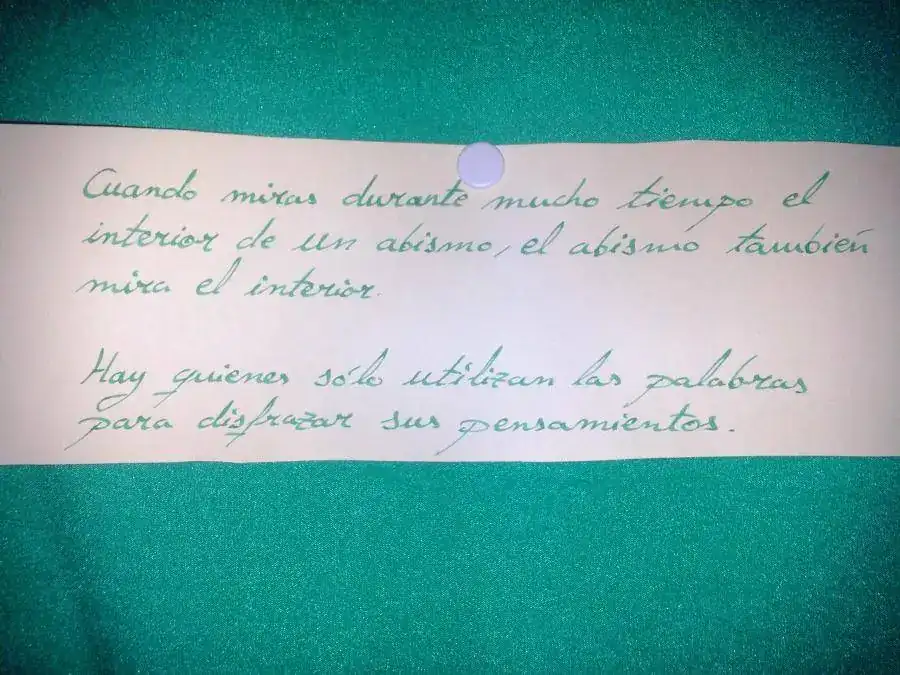 Cuando miras durante mucho tiempo el
interior de un abismo, el abismo también
mira el interior.
Hay quienes sólo utilizan las palabras
para disfrazar sus pensamientos.